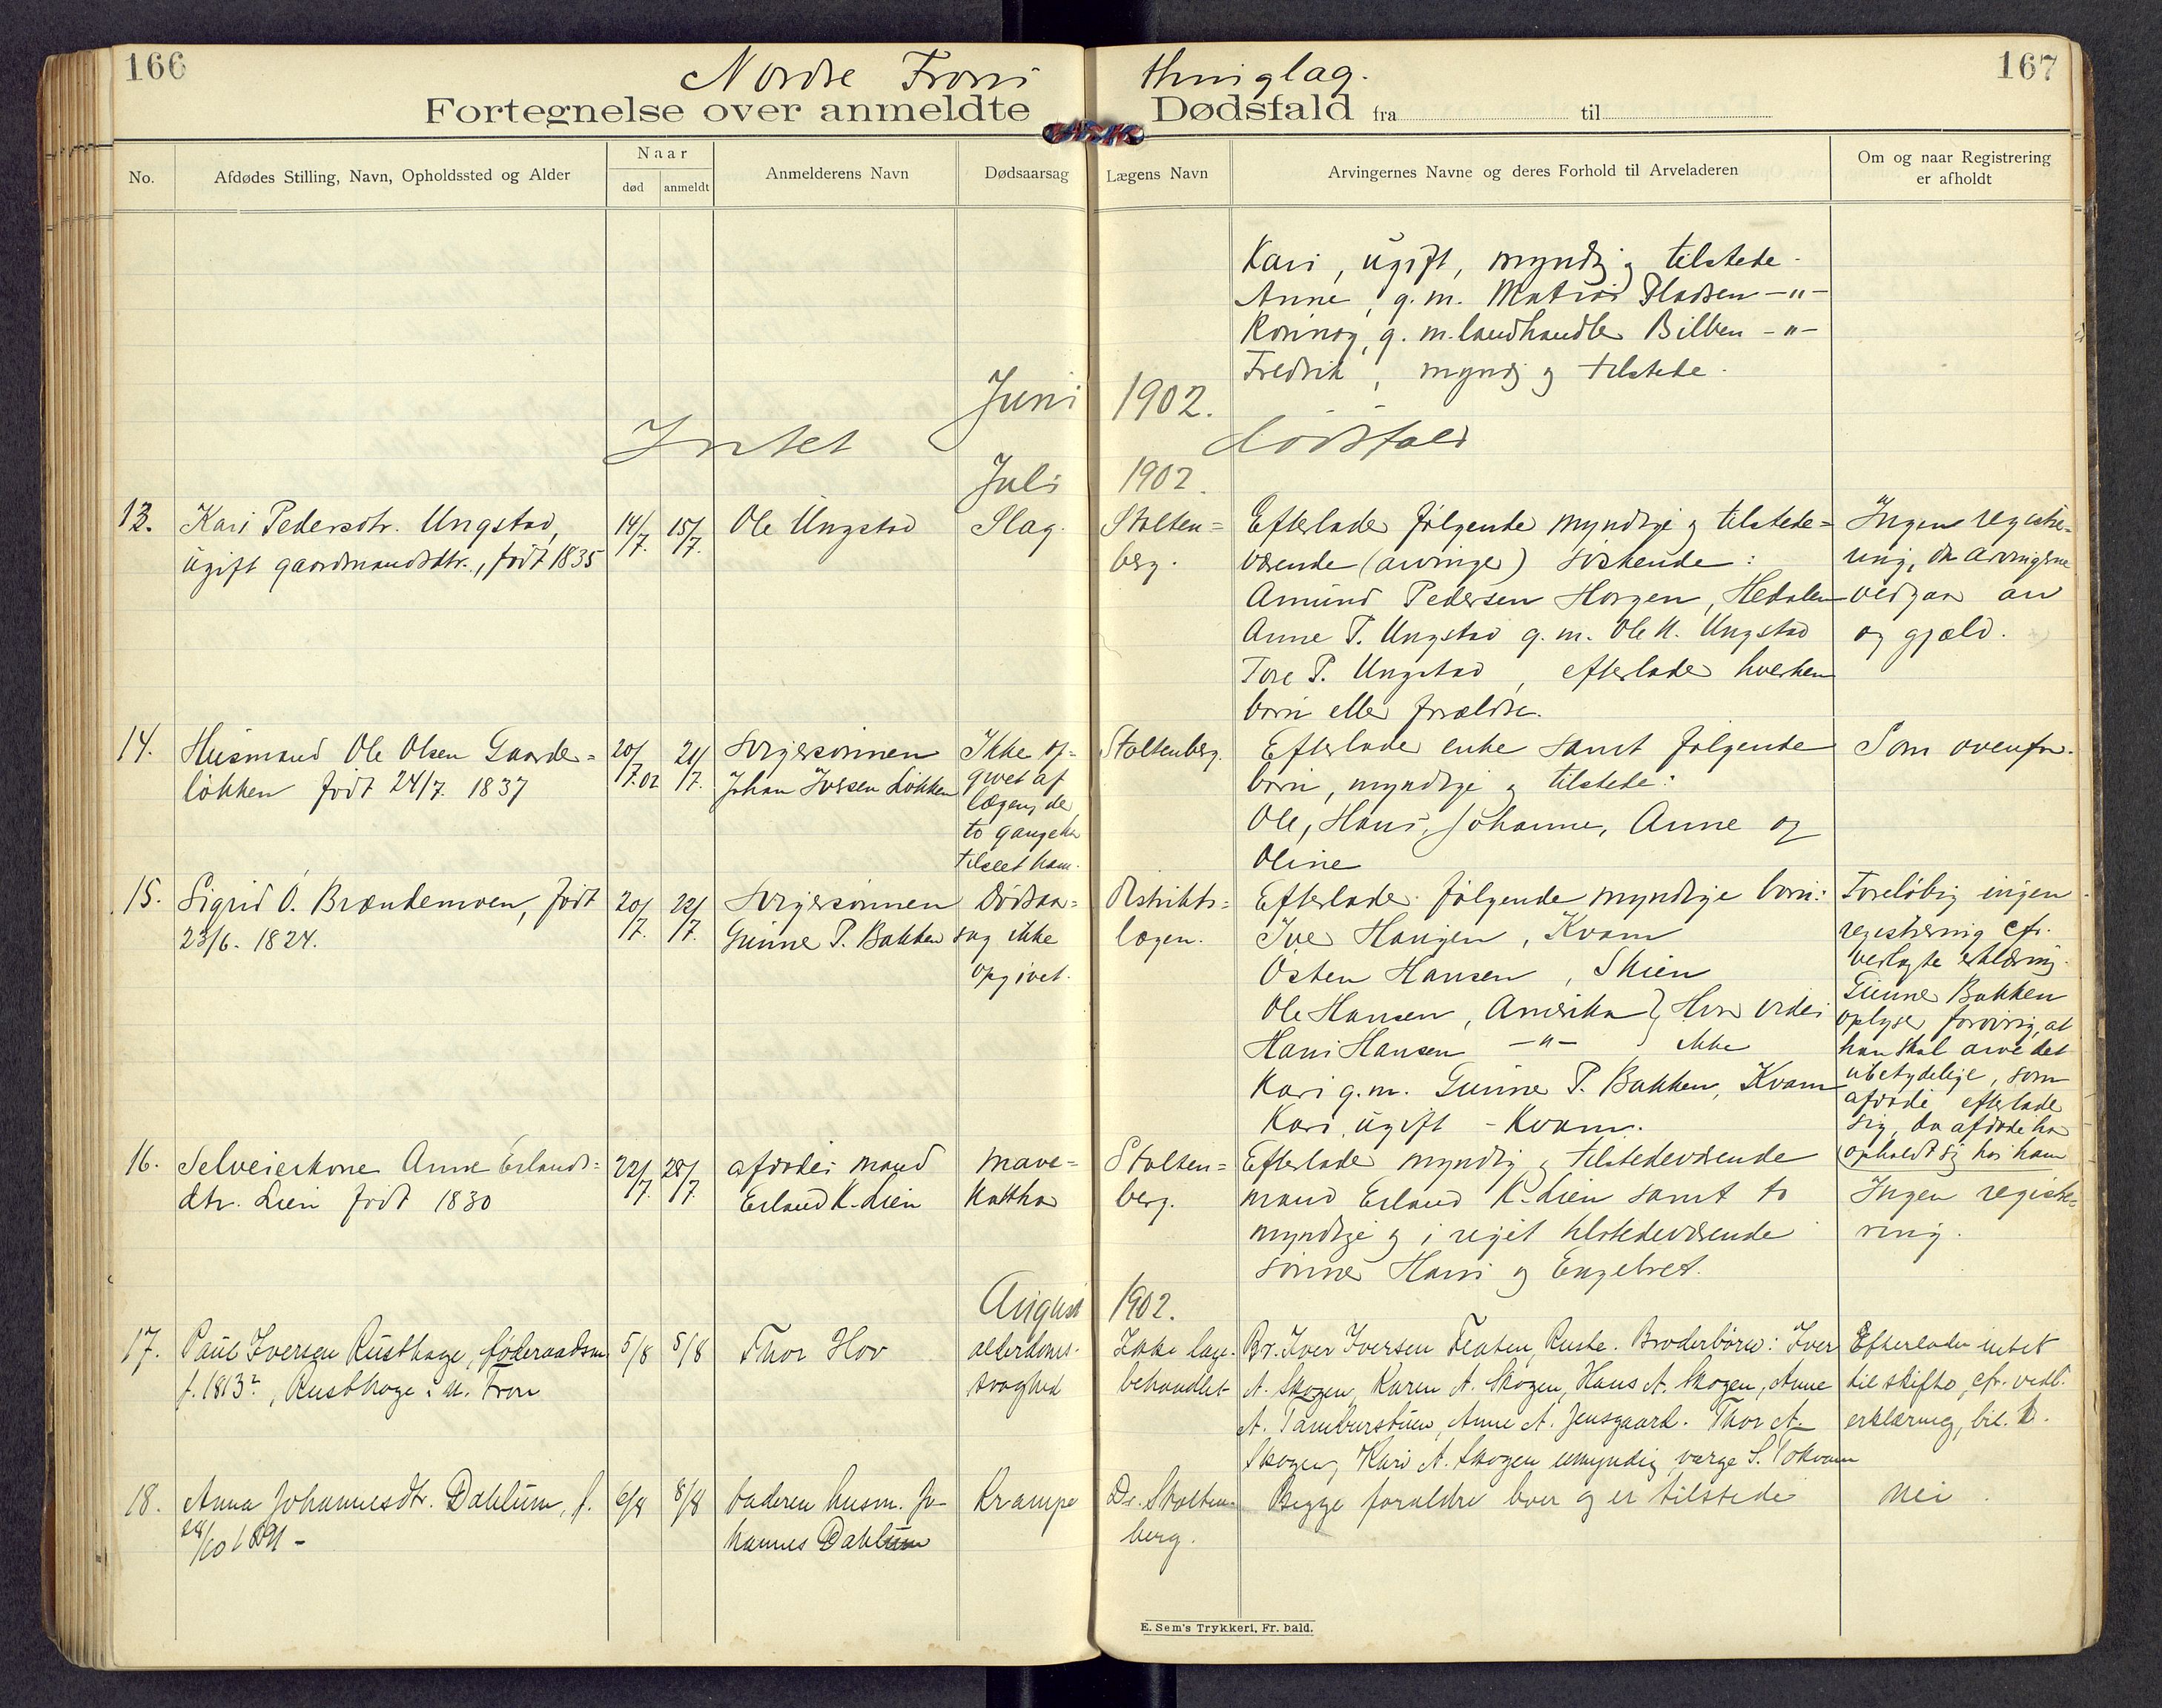 166
167
Nordre Frons thinglag.
Fortegnelse over anmeldte Dødsfald fra til
No.
Afdødes Stilling, Navn, Opholdssted og Alder
Naar
død
anmeldt
Anmelderens Navn
Dødsaarsag
Lægens Navn
Arvingernes Navne og deres Forhold til Arveladeren
Om og naar Registrering
er afholdt
Kari, ugift, myndig tilstede.
Anne, g. m. Mathias Fladsen -"-
g. m. landhandler Bilben -"-
Fredrik, myndig og tilstede.
Juni 1902.
Intet dødsfald
Juli 1902.
13.
Kari Pedersdtr. Ungstad,
ugift gaardmandsdtr., født 1835
14/7.
15/7.
Ole Ungstad
Slag.
Stolten=
berg.
Efterlader følgende myndige og tilstede=
værende (arvinger) søskende:
Amund Pedersen Horgen, Hedalen
Anne P. Ungstad g. m. Ole N. Ungstad
Tore P. Ungstad, efterlader hverken
børn eller forældre.
Ingen registre-
ring, da arvingerne
vedgaar arv
og gjæld.
14.
Husmand Ole Olsen Gaarder=
løkken født 24/7. 1837
20/7.02
21/7.
Svigersønnen
Johan Iversen Løkken
Ikke op-
givet af
lægen, der
to gange har
tilseet ham.
Stoltenberg.
Efterlader enke samt følgende
børn, myndige og tilstede:
Ole, Hans, Johanne, Anne og
Oline
Som ovenfor.
15.
Sigrid O. Brændemoen, født
23/6. 1824.
20/7.
22/7.
Svigersønnen
Gunner P. Bakken
Dødsaar=
sag ikke
opgivet.
Distrikts=
lægen.
Efterlader følgende myndige børn:
Iver Haugen, Kvam
Østen Hansen, Skien
Ole Hansen, Amerika } Hvor vides
Hans Hansen -"- } ikke
Kari g. m. Gunner P. Bakken, Kvam
Kari, ugift - Kvam.
Foreløbig ingen
registrering cfr.
vedlagte erklæring.
Gunner Bakken
oplyser forøvrig, at
han skal arve det
ubetydelige, som
afdøde efterlader
sig, da afdøde har
opholdt sig hos ham
16.
Selveierkone Anne Erlands=
dtr. Lien født 1830
22/7.
28/7.
afdødes mand
Erland K. Lien
Mave=
kathar
Stolten=
berg.
Efterlader myndig og tilstedeværende
mand Erland K. Lien samt to
myndige og i riget tilstedeværende
sønner Hans og Engebret.
Ingen registre=
ring.
August 1902.
17.
Paul Iversen Rusthage, føderaadsm.
f. 1813?, Rusthage i N. Fron
5/8
8/8
Thor Hov
alderdoms-
svaghed
Ikke læge-
behandlet
Br. Iver Iversen Flaten, Ruste. Broderbørn: Iver
A. Skogen, Karen A. Skogen, Hans A. Skogen, Anne
A. Tamburstuen, Anne A. Jensgaard. Thor A.
Skogen, Kari A. Skogen umyndig værge S. Tokvam
Efterlader intet
til skifte, cfr. vedl.
erklæring, bil.
18.
Anna Johannesdtr. Dahlum, f.
28/10 1891 -
6/8
8/8
faderen husm. Jo-
hannes Dahlum
Krampe
Dr. Stolten-
berg.
Begge forældre lever og er tilstede
nei.
E. Sem's Trykkeri, Fr.hald.